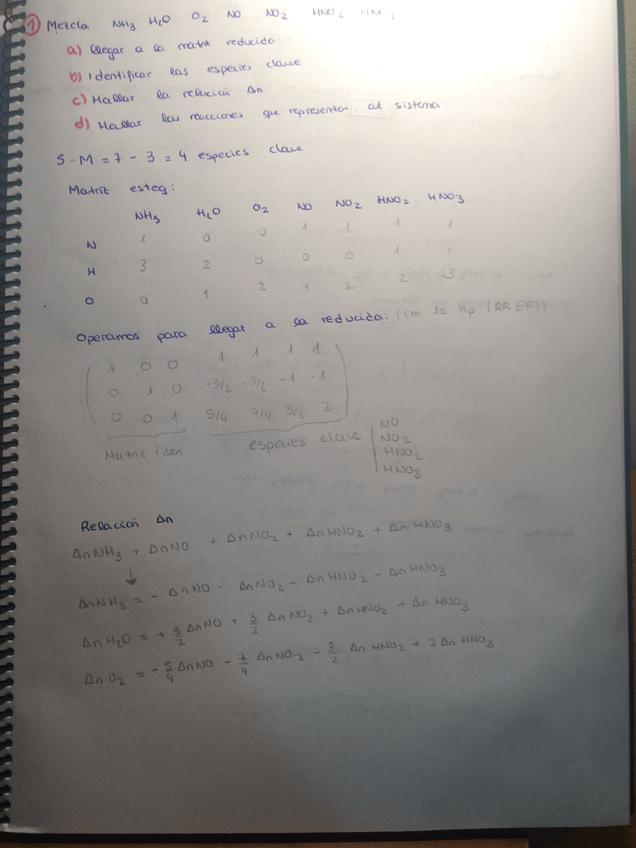 1) Mezcla NH3 H2O O2 NO NO2 HNO2 HNO3
a) llegar a la matriz reducida
b) Identificar las especies clave
c) Hallar la relación Δn
d) Hallar las reacciones que representen al sistema
S-M = 7 - 3 = 4 especies clave
Matriz esteq:
NH3 H2O O2 NO NO2 HNO2 HNO3
N 1 0 0 1 1 1 1
H 3 2 0 0 0 1 1
O 0 1 2 1 2 2 3
Operamos para llegar a la reducida: (con la hp (RREF))
1 0 0 1 1 1 1
0 1 0 -3/2 -3/2 -1 -1
0 0 1 5/4 7/4 3/2 2
Matriz iden especies clave
NO
NO2
HNO2
HNO3
Relación Δn
ΔnNH3 + ΔnNO + ΔnNO2 + ΔnHNO2 + Δn HNO3
↓
ΔnNH3 = - ΔnNO - ΔnNO2 - ΔnHNO2 - ΔnHNO3
ΔnH2O = + 3/2 ΔnNO + 3/2 ΔnNO2 + ΔnHNO2 + Δn HNO3
ΔnO2 = - 5/4 ΔnNO - 7/4 ΔnNO2 - 3/2 Δn HNO2 + 2 Δn HNO3